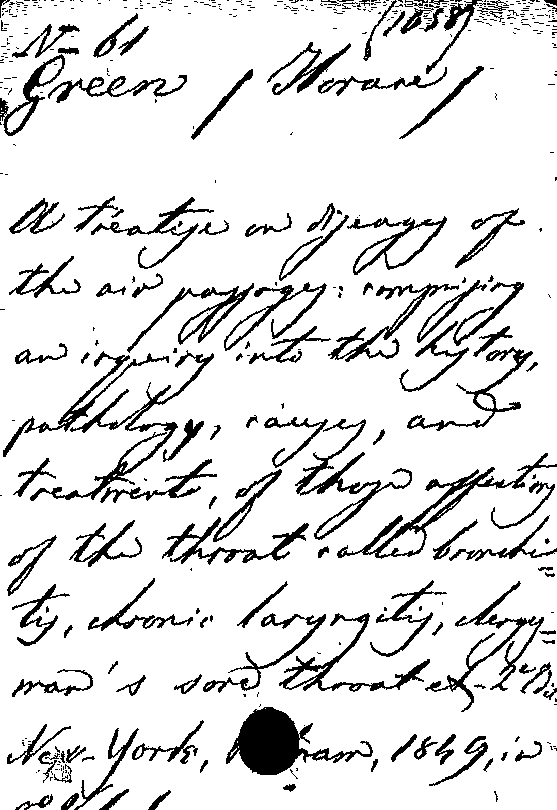 No 61 (1058)
Green (Horace)
A treatise on diseases of
the air passages: comprising
an inquiry into the history,
pathology, causes, and
treatment, of those affections
of the throat called bronchi=
tis, chronic laryngitis, clergy=
man's sore throat et - 2d Edit.
New-York, 1849, in